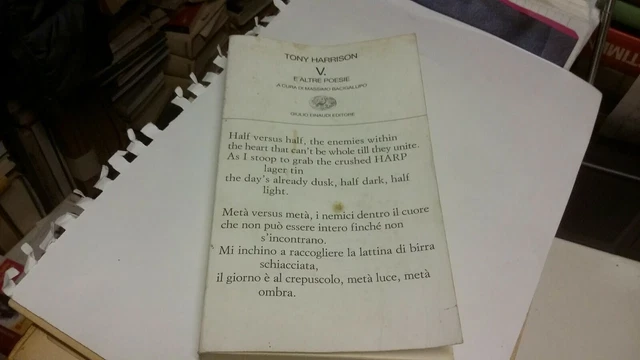 TONY HARRISON
V.
E ALTRE POESIE
A CURA DI MASSIMO BACIGALUPO
GIULIO EINAUDI EDITORE
Half versus half, the enemies within
the heart that can't be whole till they unite.
As I stoop to grab the crushed HARP
lager tin
the day's already dusk, half dark, half
light.
Metà versus metà, i nemici dentro il cuore
che non può essere intero finché non
s'incontrano.
Mi inchino a raccogliere la lattina di birra
schiacciata,
il giorno è al crepuscolo, metà luce, metà
ombra.